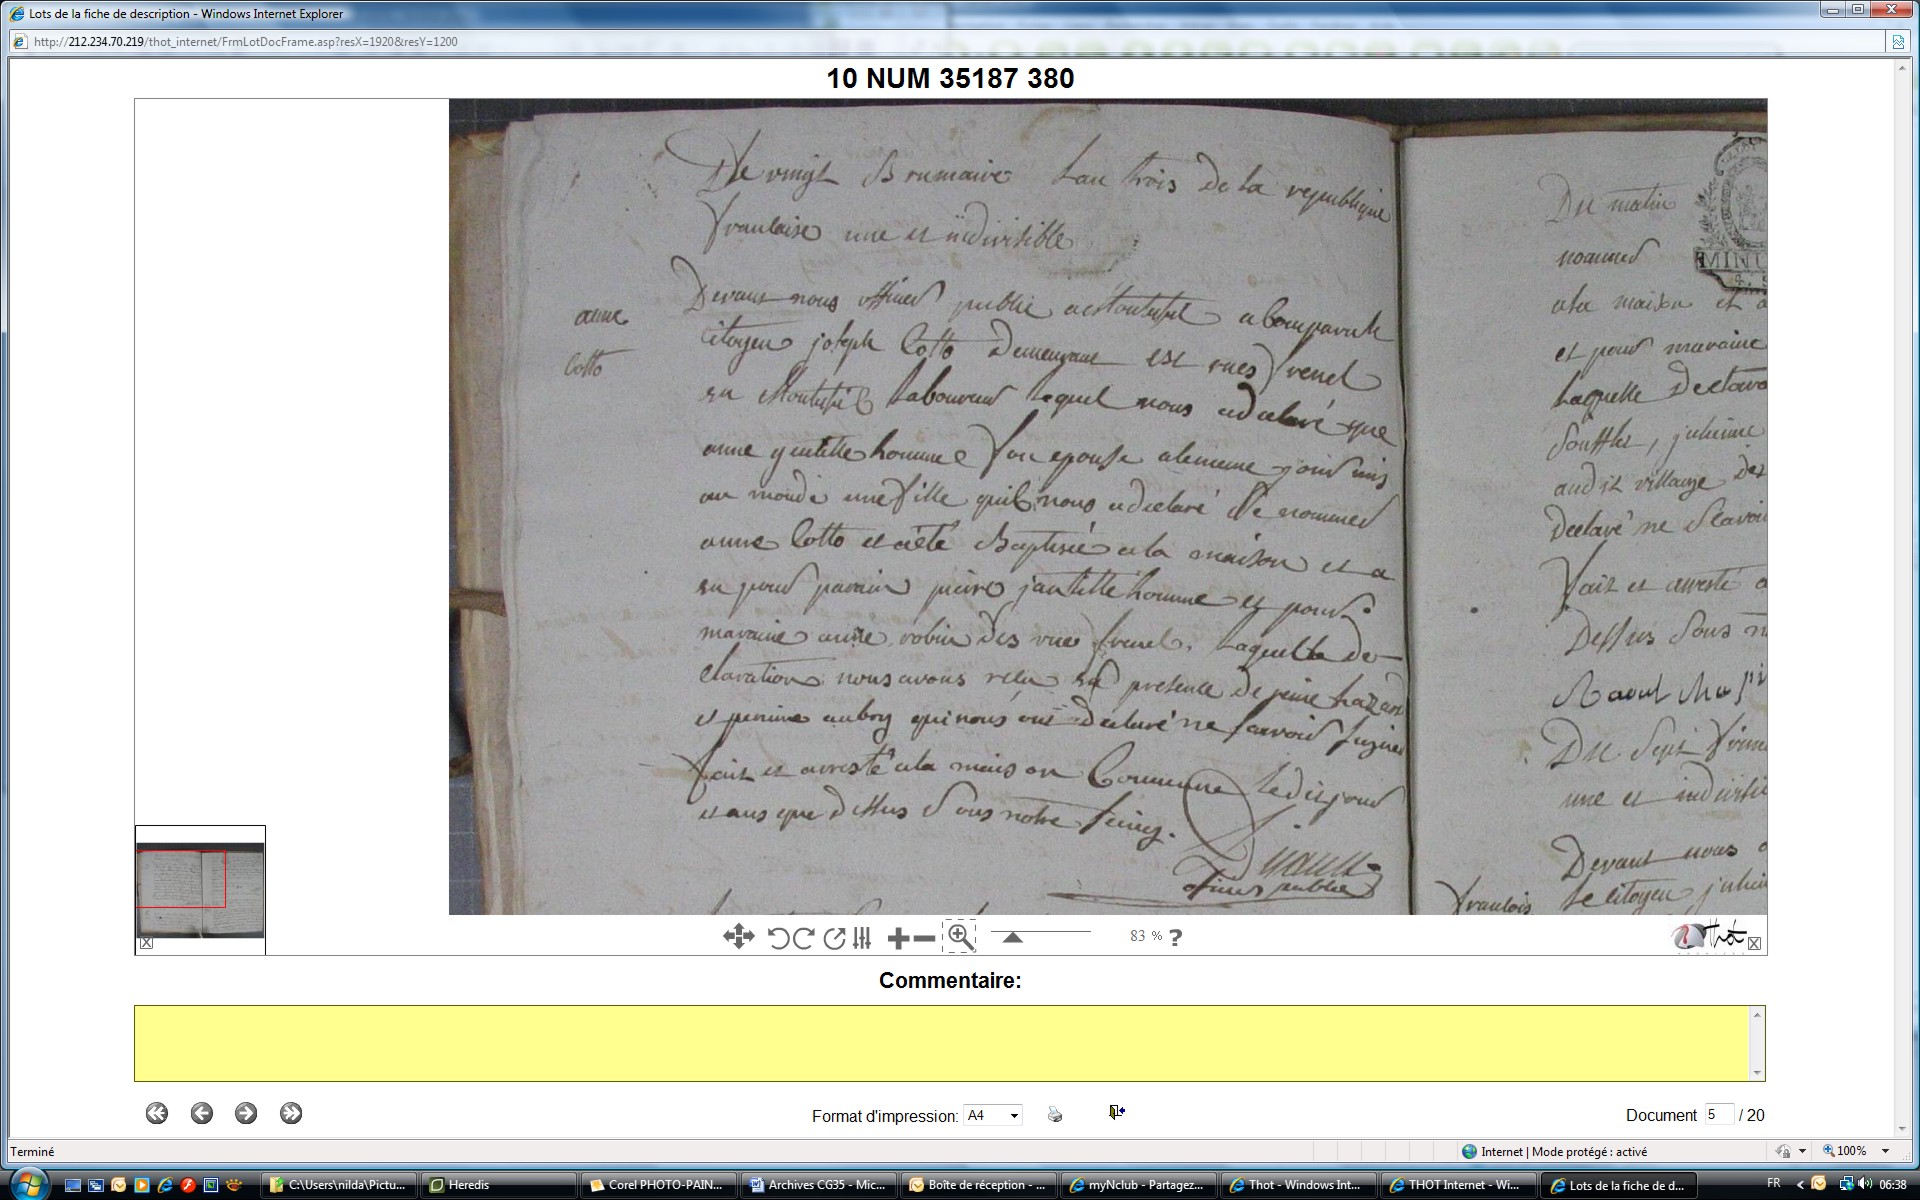 Lots de la fiche de description - Windows Internet Explorer
http://212.234.70.219/thot_internet/FrmLotDocFrame.asp?resX=1920&resY=1200
10 NUM 35187 380
De vingt Brumaire Lan trois de la republique
francaise une et indivisible
anne
Cotto
Devant nous officier public a comparu le
citoyen joseph Cotto Demeurant rues
en Laboureur Lequel nous a declaré que
anne gentille homme son epouse mis
au monde une fille quil nous a declaré Se nommer
anne Cotto et a été Baptisée a la maison et a
eu pour parain jantille homme et pour
maraine anne robin des rue Laquelle de-
claration nous avons reçu en presence de hazard
et perrine aubry qui nous ont declaré ne savoir signer
fait et arresté a la maison Commune Ledit jour
et ans que dessus Sous notre seing.
officier public
Du matin
nommer
MINU
a la maison et a
et pour maraine
Laquelle Declara
Soufflet, julienne
audit village Des
declaré ne Scavoir
fait et arresté a
Dessus Sous n
Raoul
Du Sept frim
une et indivisi
Devant nous o
francois
Le citoyen julien
83 % ?
Thot
Commentaire:
Format d'impression: A4
Document 5 / 20
Terminé
Internet | Mode protégé : activé
100%
C:\Users\nilda\Pictu...
Heredis
Corel PHOTO-PAIN...
Archives CG35 - Mic...
Boîte de réception - ...
myNclub - Partagez...
Thot - Windows Int...
THOT Internet - Wi...
Lots de la fiche de d...
FR
06:38